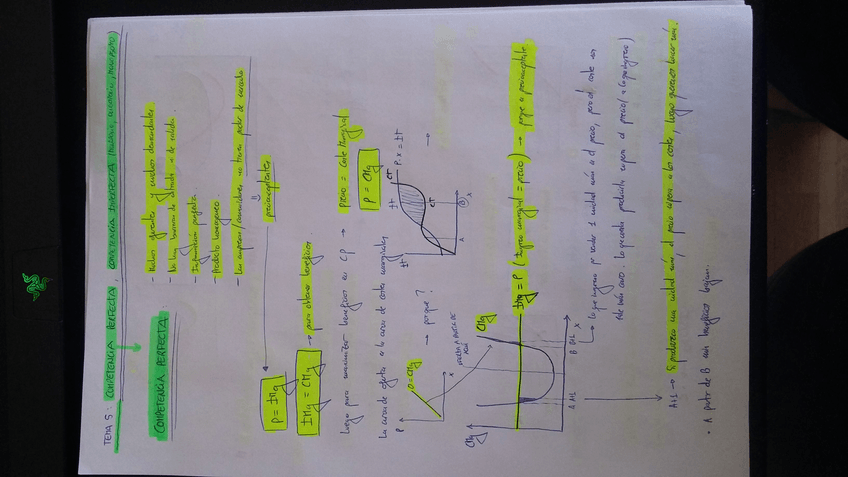 TEMA 5: COMPETENCIA PERFECTA, COMPETENCIA IMPERFECTA
COMPETENCIA PERFECTA
- Muchos oferentes y muchos demandantes
- No hay barreras de entrada o de salida.
- Información perfecta
- Producto homogéneo
- Las empresas/consumidores no tienen poder de mercado
=
precioaceptantes
P = IMg
IMg = CMg → para obtener beneficios
Luego para maximizar beneficios en CP → Precio = Coste Marginal
P = CMg
La curva de oferta es la curva de costes marginales
→ porque?
P
O=CMg
x
IT
IT
CT
P·x = IT
CT
A
B
x
→
CMg
CMg
IMg = P (Ingreso marginal = precio) → porque es precioaceptante
A A+1
B B+1
x
→ lo que ingreso por vender 1 unidad más es el precio, pero el coste es
A+1 → Si produzco una unidad más, el precio supera a los costes, luego querré hacer más.
• A partir de B mis beneficios bajan.